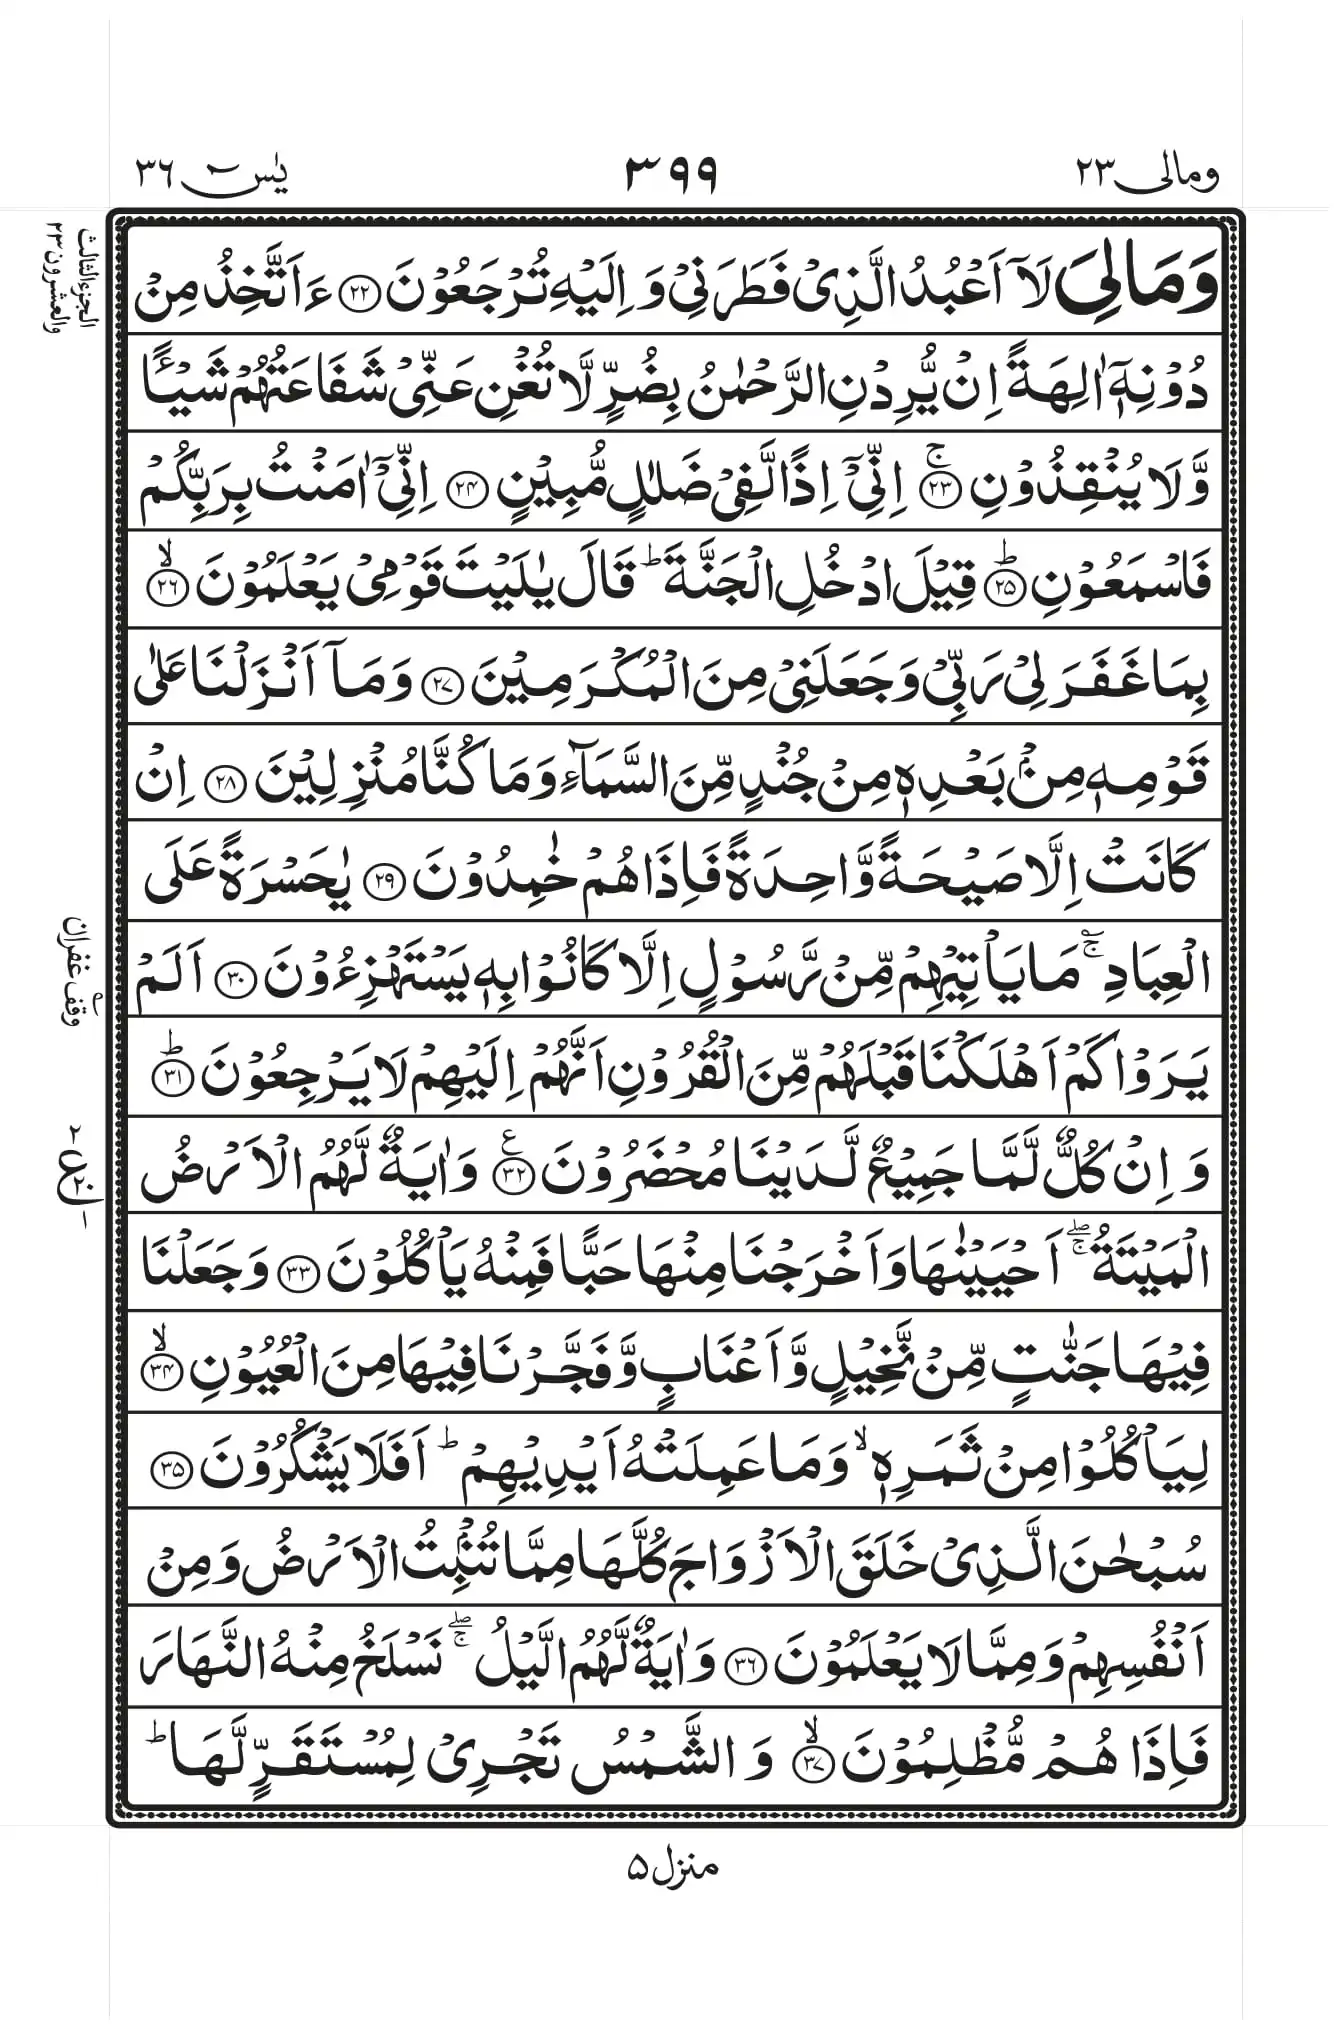 ومالی ۲۳
۳۹۹
یٰسٓ ۳۶
وَمَالِیَ لَاۤ اَعْبُدُ الَّذِیْ فَطَرَنِیْ وَ اِلَیْهِ تُرْجَعُوْنَ ﴿۲۲﴾ ءَاَتَّخِذُ مِنْ
دُوْنِهٖۤ اٰلِهَةً اِنْ یُّرِدْنِ الرَّحْمٰنُ بِضُرٍّ لَّا تُغْنِ عَنِّیْ شَفَاعَتُهُمْ شَیْـًٔا
وَّلَا یُنْقِذُوْنِ ﴿۲۳﴾ۚ اِنِّیْۤ اِذًا لَّفِیْ ضَلٰلٍ مُّبِیْنٍ ﴿۲۴﴾ اِنِّیْۤ اٰمَنْتُ بِرَبِّكُمْ
فَاسْمَعُوْنِ ﴿۲۵﴾ؕ قِیْلَ ادْخُلِ الْجَنَّةَ ؕ قَالَ یٰلَیْتَ قَوْمِیْ یَعْلَمُوْنَ ﴿۲۶﴾ۙ
بِمَا غَفَرَ لِیْ رَبِّیْ وَجَعَلَنِیْ مِنَ الْمُكْرَمِیْنَ ﴿۲۷﴾ وَمَاۤ اَنْزَلْنَا عَلٰی
قَوْمِهٖ مِنْۢ بَعْدِهٖ مِنْ جُنْدٍ مِّنَ السَّمَآءِ وَمَا كُنَّا مُنْزِلِیْنَ ﴿۲۸﴾ اِنْ
كَانَتْ اِلَّا صَیْحَةً وَّاحِدَةً فَاِذَا هُمْ خٰمِدُوْنَ ﴿۲۹﴾ یٰحَسْرَةً عَلَی
الْعِبَادِ ۚ مَا یَاْتِیْهِمْ مِّنْ رَّسُوْلٍ اِلَّا كَانُوْا بِهٖ یَسْتَهْزِءُوْنَ ﴿۳۰﴾ اَلَمْ
یَرَوْا كَمْ اَهْلَكْنَا قَبْلَهُمْ مِّنَ الْقُرُوْنِ اَنَّهُمْ اِلَیْهِمْ لَا یَرْجِعُوْنَ ﴿۳۱﴾ؕ
وَ اِنْ كُلٌّ لَّمَّا جَمِیْعٌ لَّدَیْنَا مُحْضَرُوْنَ ﴿۳۲﴾ ع وَاٰیَةٌ لَّهُمُ الْاَرْضُ
الْمَیْتَةُ ۖۚ اَحْیَیْنٰهَا وَاَخْرَجْنَا مِنْهَا حَبًّا فَمِنْهُ یَاْكُلُوْنَ ﴿۳۳﴾ وَجَعَلْنَا
فِیْهَا جَنّٰتٍ مِّنْ نَّخِیْلٍ وَّاَعْنَابٍ وَّفَجَّرْنَا فِیْهَا مِنَ الْعُیُوْنِ ﴿۳۴﴾ۙ
لِیَاْكُلُوْا مِنْ ثَمَرِهٖ ۙ وَمَا عَمِلَتْهُ اَیْدِیْهِمْ ؕ اَفَلَا یَشْكُرُوْنَ ﴿۳۵﴾
سُبْحٰنَ الَّذِیْ خَلَقَ الْاَزْوَاجَ كُلَّهَا مِمَّا تُنْۢبِتُ الْاَرْضُ وَمِنْ
اَنْفُسِهِمْ وَمِمَّا لَا یَعْلَمُوْنَ ﴿۳۶﴾ وَاٰیَةٌ لَّهُمُ الَّیْلُ ۖۚ نَسْلَخُ مِنْهُ النَّهَارَ
فَاِذَا هُمْ مُّظْلِمُوْنَ ﴿۳۷﴾ۙ وَ الشَّمْسُ تَجْرِیْ لِمُسْتَقَرٍّ لَّهَا ؕ
الجزء الثالث
والعشرون ۲۳
وقف غفران
۲
ع ۲۰
۱
منزل ۵